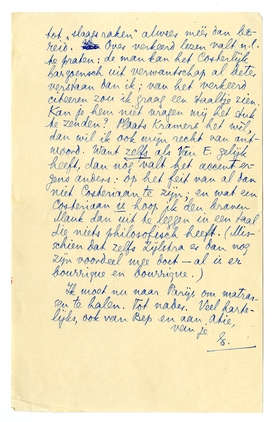 tot „slaags raken" alweer méér dan be-
reid. Over verkeerd lezen valt n.l.
te praten: de man kan het Costerlijk
bargoensch uit verwantschap al beter
verstaan dan ik; van het verkeerd
citeeren zou ik graag een staaltje zien.
Kan je hem niet vragen mij het stuk
te zenden? Plaatst Kramers het wil,
dan wil ik ook mijn recht van ant-
woord. Want zelfs als Van E. gelijk
heeft, dan nog valt het accent er-
gens anders: op het feit van al dan
niet Costeriaan te zijn; en wat een
Costeriaan is hoop ik den braven
Menk dan uit te leggen in een taal
die niets philosofisch heeft. (Mis-
schien dat zelfs Zijlstra er dan nog
zijn voordeel mee doet – al is er
bourrique en bourrique.)
Ik moet nu naar Parijs om matras-
sen te halen. Tot nader. Veel harte-
lijks, ook van Bep en aan Atie,
van je
E.